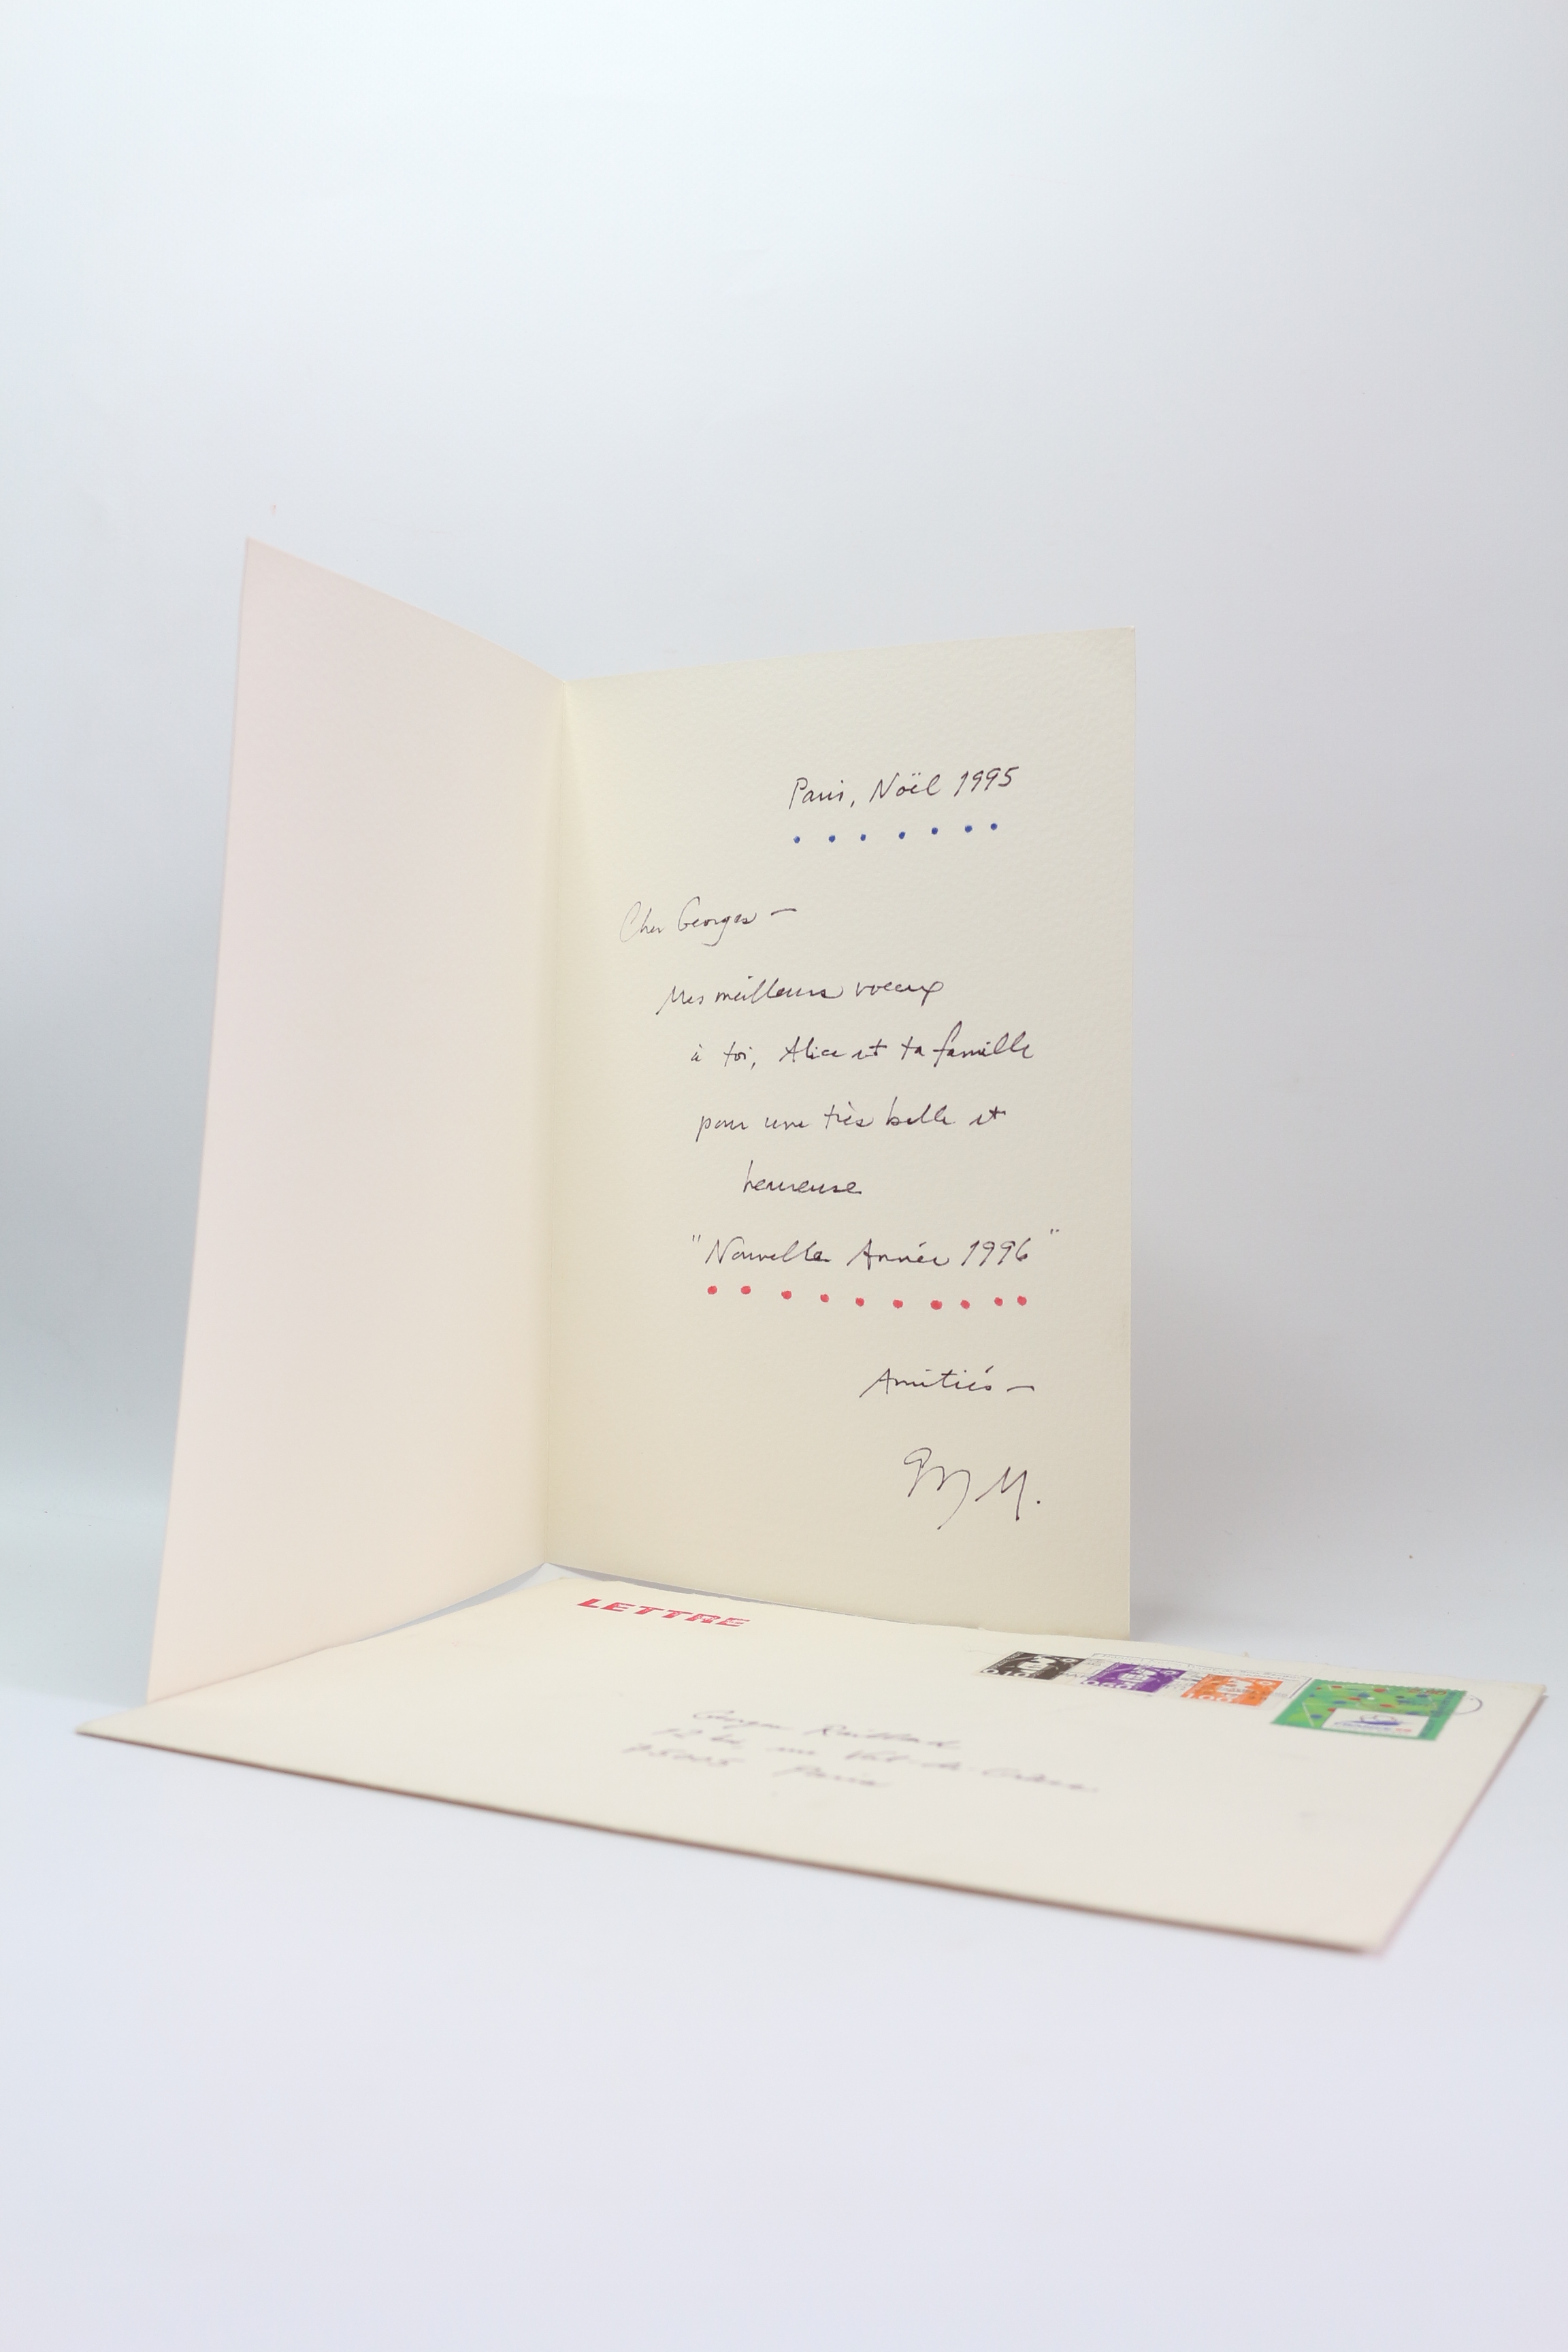 Paris, Noël 1995
Cher Georges —
Mes meilleurs voeux
à toi, Alice et ta famille
pour une très belle et
heureuse
"Nouvelle Année 1996"
Amitiés —
M.
LETTRE
0,10
1,00
Georges Raillard
75005 Paris